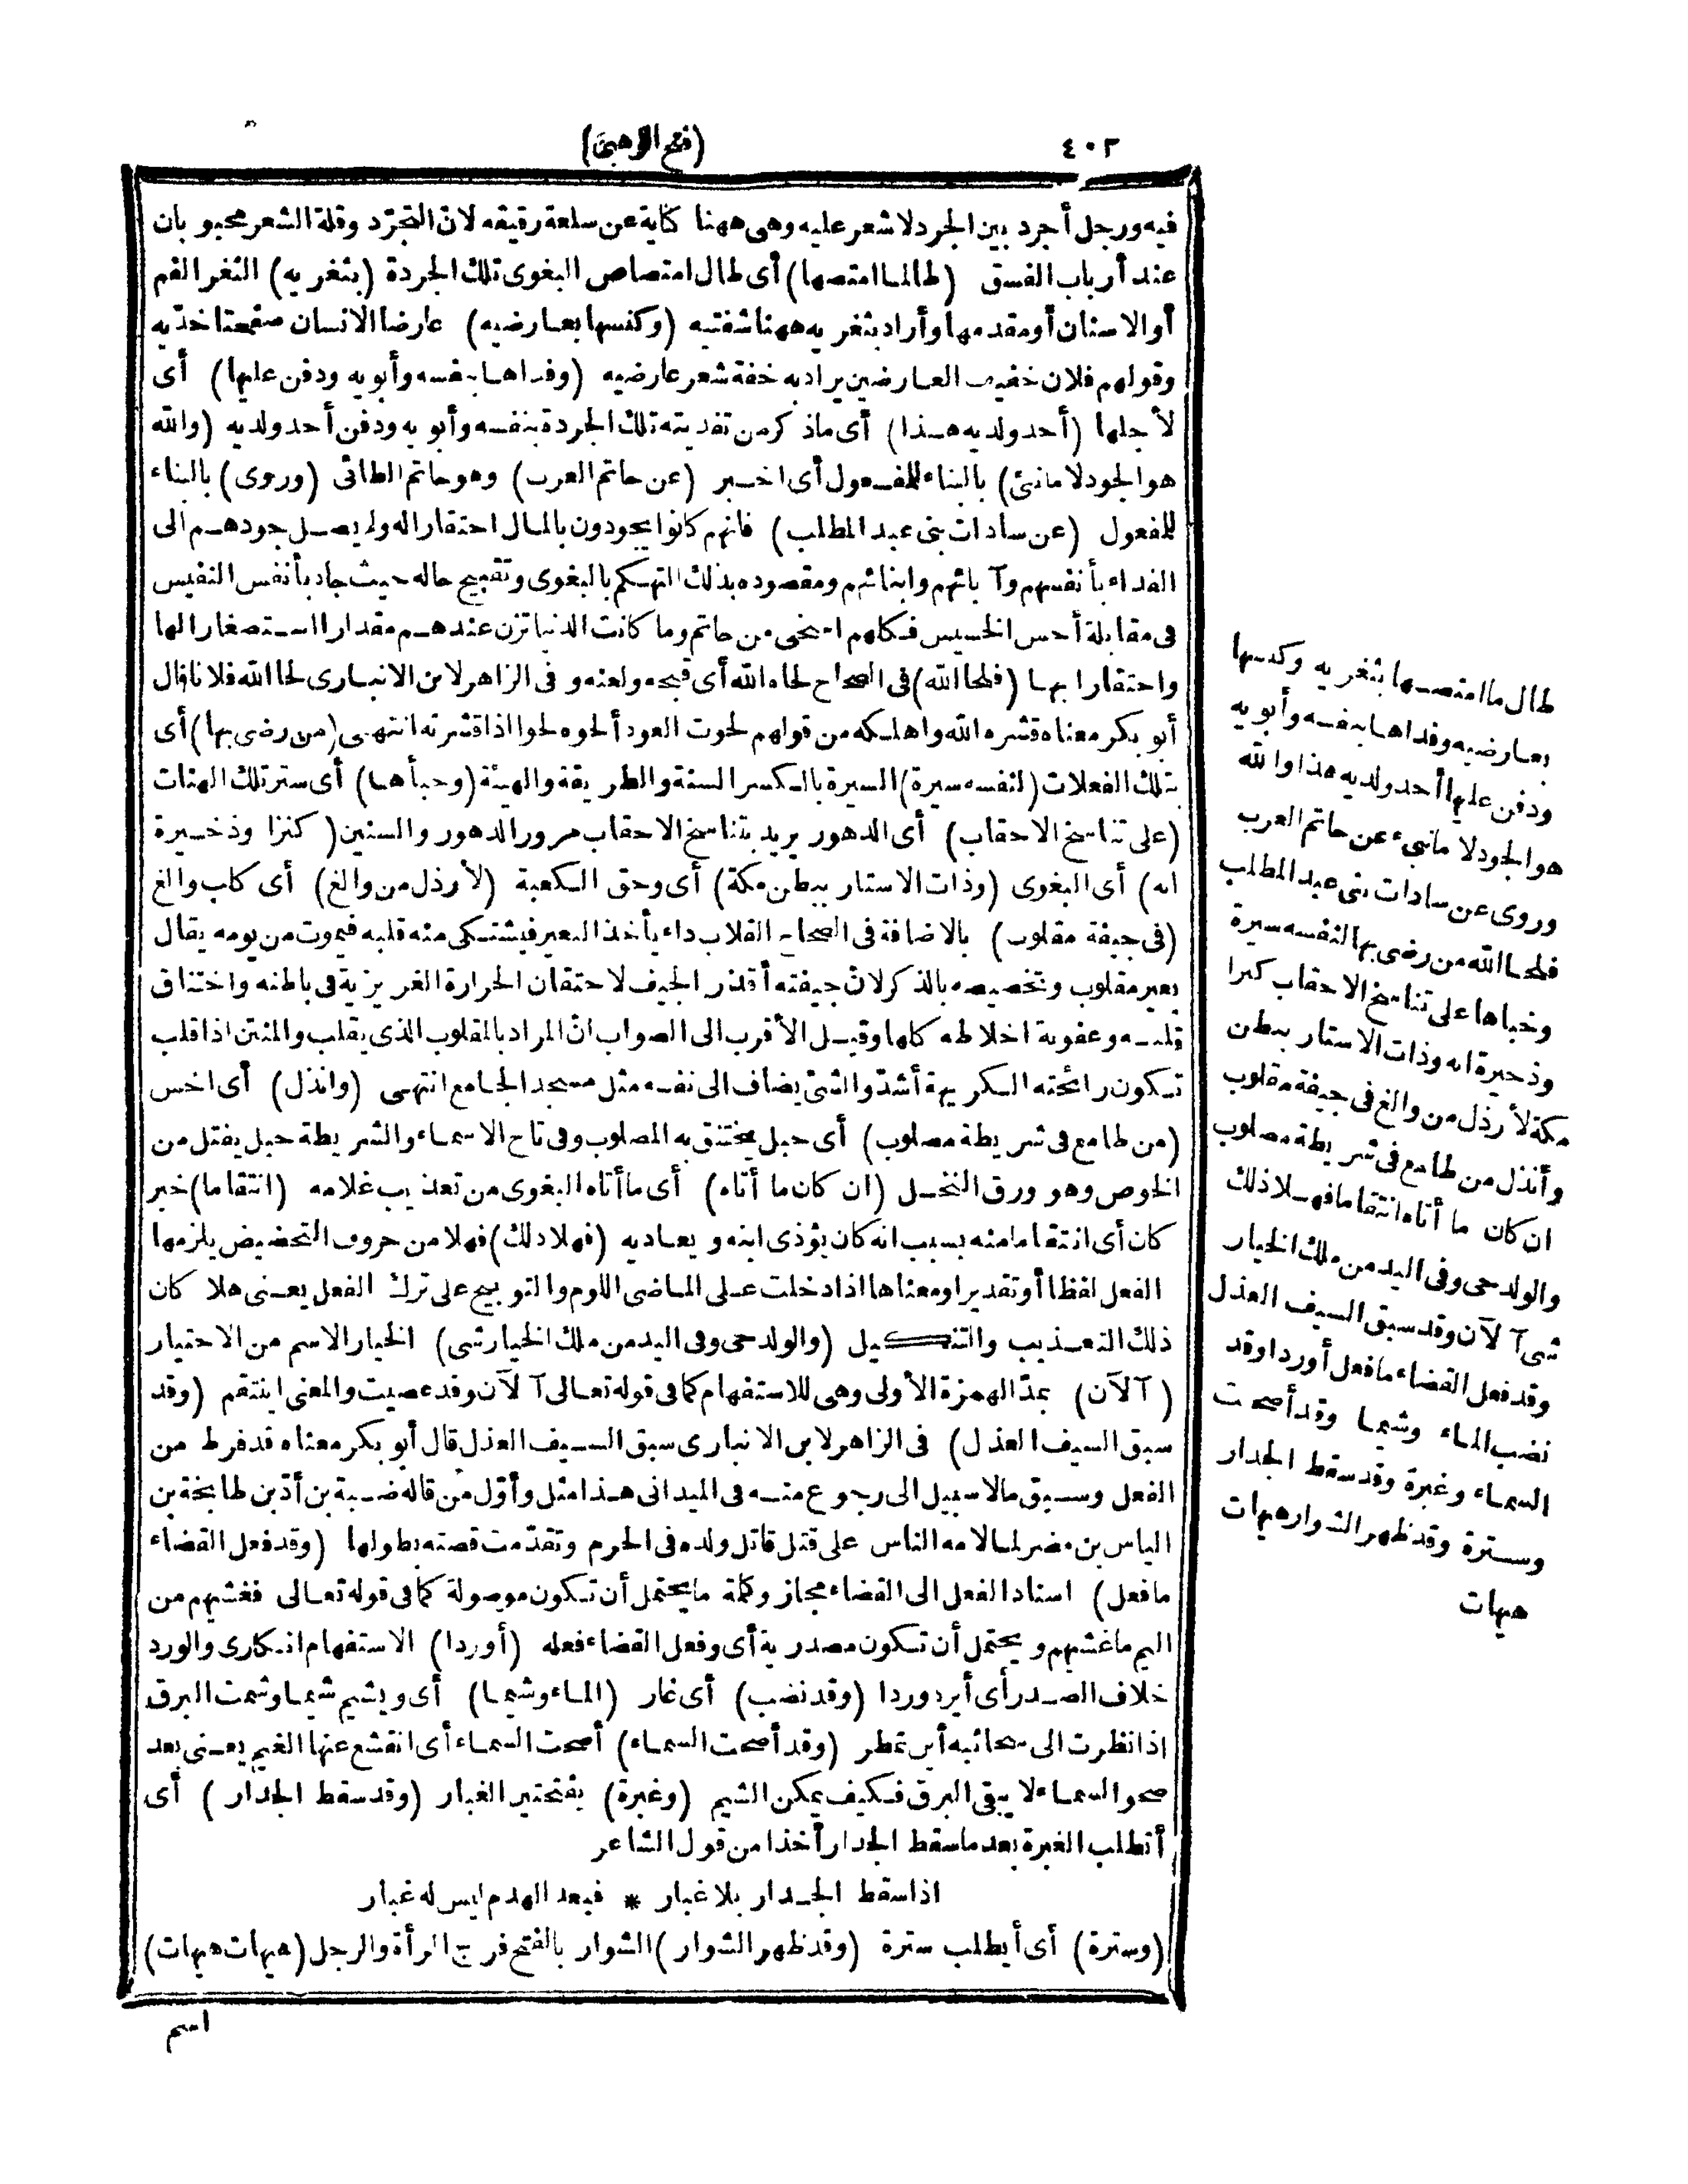 ٤٠٢
(فتح الوهبى)
فيه ورجل أجرد بين الجرد لا شعر عليه وهى ههنا كناية عن سلعة رقيقه لان التجرّد وقلة الشعر محبوبان
عند أرباب الفسق (طالما امتصها) أى طال امتصاص البغوى تلك الجردة (بثغريه) الثغر الفم
أو الاسنان أو مقدمها وأراد بثغريه ههنا شفتيه (وكنسها بعارضيه) عارضا الانسان صفحتا خدّيه
وقولهم فلان خفيف العارضين يراد به خفة شعر عارضيه (وفداها بنفسه وأبويه ودفن عليها) أى
لأجلها (أحد ولديه هذا) أى ما ذكر من تفديته تلك الجردة بنفسه وأبويه ودفن أحد ولديه (والله
هو الجود لا مانئ) بالبناء للمفعول أى اخبر (عن حاتم العرب) وهو حاتم الطائى (وروى) بالبناء
للمفعول (عن سادات بنى عبد المطلب) فانهم كانوا يجودون بالمال احتقارا له ولم يصل جودهم الى
الفداء بأنفسهم وآبائهم وابنائهم ومقصوده بذلك التهكم بالبغوى وتقبيح حاله حيث جاد بأنفس النفيس
فى مقابلة أخس الخسيس فكلهم اسخى من حاتم وما كانت الدنيا تزن عندهم مقدارا استصغارا لها
واحتقارا بها (فلحا الله) فى الصحاح لحاه الله أى قبحه ولعنه وفى الزاهر لابن الانبارى لحا الله فلانا قال
أبو بكر معناه قشره الله واهلكه من قولهم لحوت العود ألحوه لحوا اذا قشرته انتهى (من رضى بها) أى
بتلك الفعلات (لنفسه سيرة) السيرة بالكسر السنة والطريقة والهيئة (وخبأها) أى ستر تلك الهنات
(على تناسخ الاحقاب) أى الدهور يريد بتناسخ الاحقاب مرور الدهور والسنين (كنزا وذخيرة
انه) أى البغوى (وذات الاستار ببطن مكة) أى وحق الكعبة (لأرذل من والغ) أى كلب والغ
(فى جيفة مقلوب) بالاضافة فى الصحاح القلاب داء يأخذ البعير فيشتكى منه قلبه فيموت من يومه يقال
بعير مقلوب وتخصيصه بالذكر لان جيفته أقذر الجيف لاحتقان الحرارة الغريزية فى باطنه واختناق
قلبه وعفونة اخلاطه كلها وقيل الأقرب الى الصواب انّ المراد بالمقلوب الذى يقلب والمنتن اذا قلب
تكون رائحته الكريهة أشدّ والشئ يضاف الى نفسه مثل مسجد الجامع انتهى (وانذل) أى اخس
(من طامع فى شريطة مصلوب) أى حبل يختنق به المصلوب وفى تاج الاسماء والشريطة حبل يفتل من
الخوص وهو ورق النخل (ان كان ما أتاه) أى ما أتاه البغوى من تعذيب غلامه (انتقاما) خبر
كان أى انتقاما منه بسبب انه كان يؤذى ابنه ويعاديه (فهلا ذلك) فهلا من حروف التحضيض يلزمها
الفعل لفظا أو تقديرا ومعناها اذا دخلت على الماضى اللوم والتوبيخ على ترك الفعل يعنى هلا كان
ذلك التعذيب والتنكيل (والولد حى وفى اليد من ملك الخيار شى) الخيار الاسم من الاختيار
(آلآن) بمدّ الهمزة الأولى وهى للاستفهام كما فى قوله تعالى آلآن وقد عصيت والمعنى اينتقم (وقد
سبق السيف العذل) فى الزاهر لابن الانبارى سبق السيف العذل قال أبو بكر معناه قد فرط من
الفعل وسبق مالا سبيل الى رجوع منه فى الميدانى هذا مثل وأوّل من قاله ضبة بن أدّ بن طابخة بن
الياس بن مضر لما لامه الناس على قتل قاتل ولده فى الحرم وتقدّمت قصته بطولها (وقد فعل القضاء
ما فعل) اسناد الفعل الى القضاء مجاز وكلمة ما يحتمل أن تكون موصولة كما فى قوله تعالى فغشيهم من
اليم ما غشيهم ويحتمل أن تكون مصدرية أى وفعل القضاء فعله (أوردا) الاستفهام انكارى والورد
خلاف الصدر أى أيرد وردا (وقد نضب) أى غار (الماء وشيما) أى ويشيم شيما وشمت البرق
اذا نظرت الى سحائبه أين تمطر (وقد أصحت السماء) أصحت السماء أى انقشع عنها الغيم يعنى بعد
صحو السماء لا يبقى البرق فكيف يمكن الشيم (وغبرة) بفتحتين الغبار (وقد سقط الجدار) أى
أتطلب الغبرة بعد ما سقط الجدار أخذا من قول الشاعر
اذا سقط الجدار بلا غبار * فبعد الهدم ليس له غبار
(وسترة) أى أيطلب سترة (وقد ظهر الشوار) الشوار بالفتح فرج المرأة والرجل (هيهات هيهات)
اسم
طال ما امتصها بثغريه وكنسها
بعارضيه وفداها بنفسه وأبويه
ودفن عليها أحد ولديه هذا والله
هو الجود لا مانىء عن حاتم العرب
وروى عن سادات بنى عبد المطلب
فلحا الله من رضى بها لنفسه سيرة
وخباها على تناسخ الاحقاب كنزا
وذخيرة انه وذات الاستار ببطن
مكة لأرذل من والغ فى جيفة مقلوب
وأنذل من طامع فى شريطة مصلوب
ان كان ما أتاه انتقاما فهلا ذلك
والولد حى وفى اليد من ملك الخيار
شى آلآن وقد سبق السيف العذل
وقد فعل القضاء ما فعل أوردا وقد
نضب الماء وشيما وقد أصحت
السماء وغبرة وقد سقط الجدار
وسترة وقد ظهر الشوار هيهات
هيهات